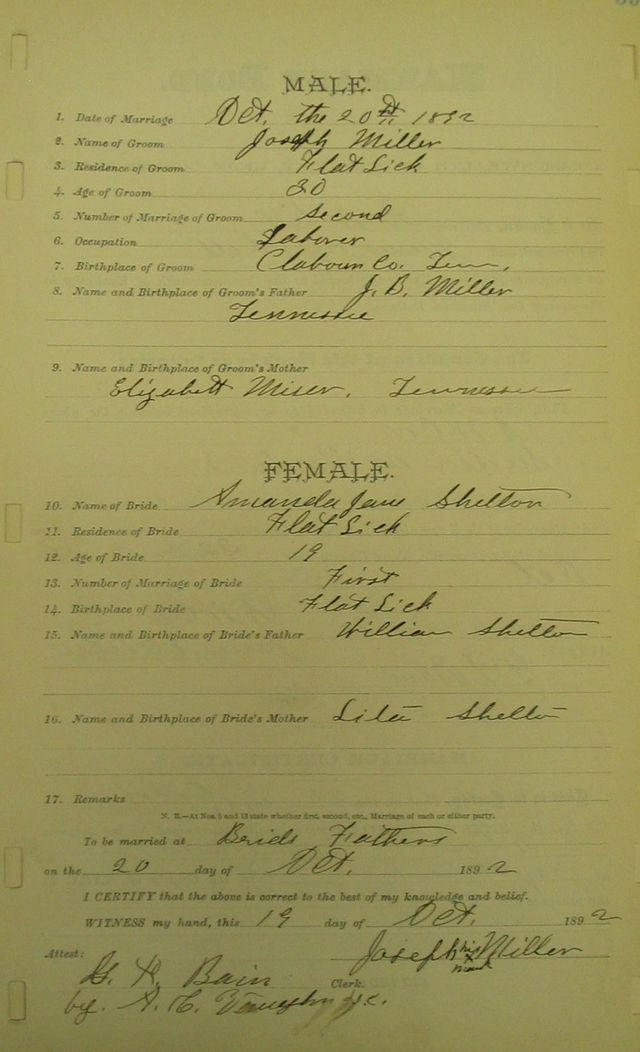 MALE.
1. Date of Marriage Oct. the 20th 1892
2. Name of Groom Joseph Miller
3. Residence of Groom Flat Lick
4. Age of Groom 30
5. Number of Marriage of Groom Second
6. Occupation Laborer
7. Birthplace of Groom Claboun Co. Tenn.
8. Name and Birthplace of Groom's Father J. B. Miller
Tennessee
9. Name and Birthplace of Groom's Mother
Elizabett Miser, Tennessee
FEMALE.
10. Name of Bride Amanda Jane Shelton
11. Residence of Bride Flat Lick
12. Age of Bride 19
13. Number of Marriage of Bride First
14. Birthplace of Bride Flat Lick
15. Name and Birthplace of Bride's Father William Shelton
16. Name and Birthplace of Bride's Mother Shelton
17. Remarks
N. B.—At Nos. 5 and 13 state whether first, second, etc., Marriage of each or either party.
To be married at Brids Fathers
on the 20 day of Oct. 1892
I CERTIFY that the above is correct to the best of my knowledge and belief.
WITNESS my hand, this 19 day of Oct. 1892
Joseph his x mark Miller
Attest:
Bain Clerk.
by. A. C. D.C.